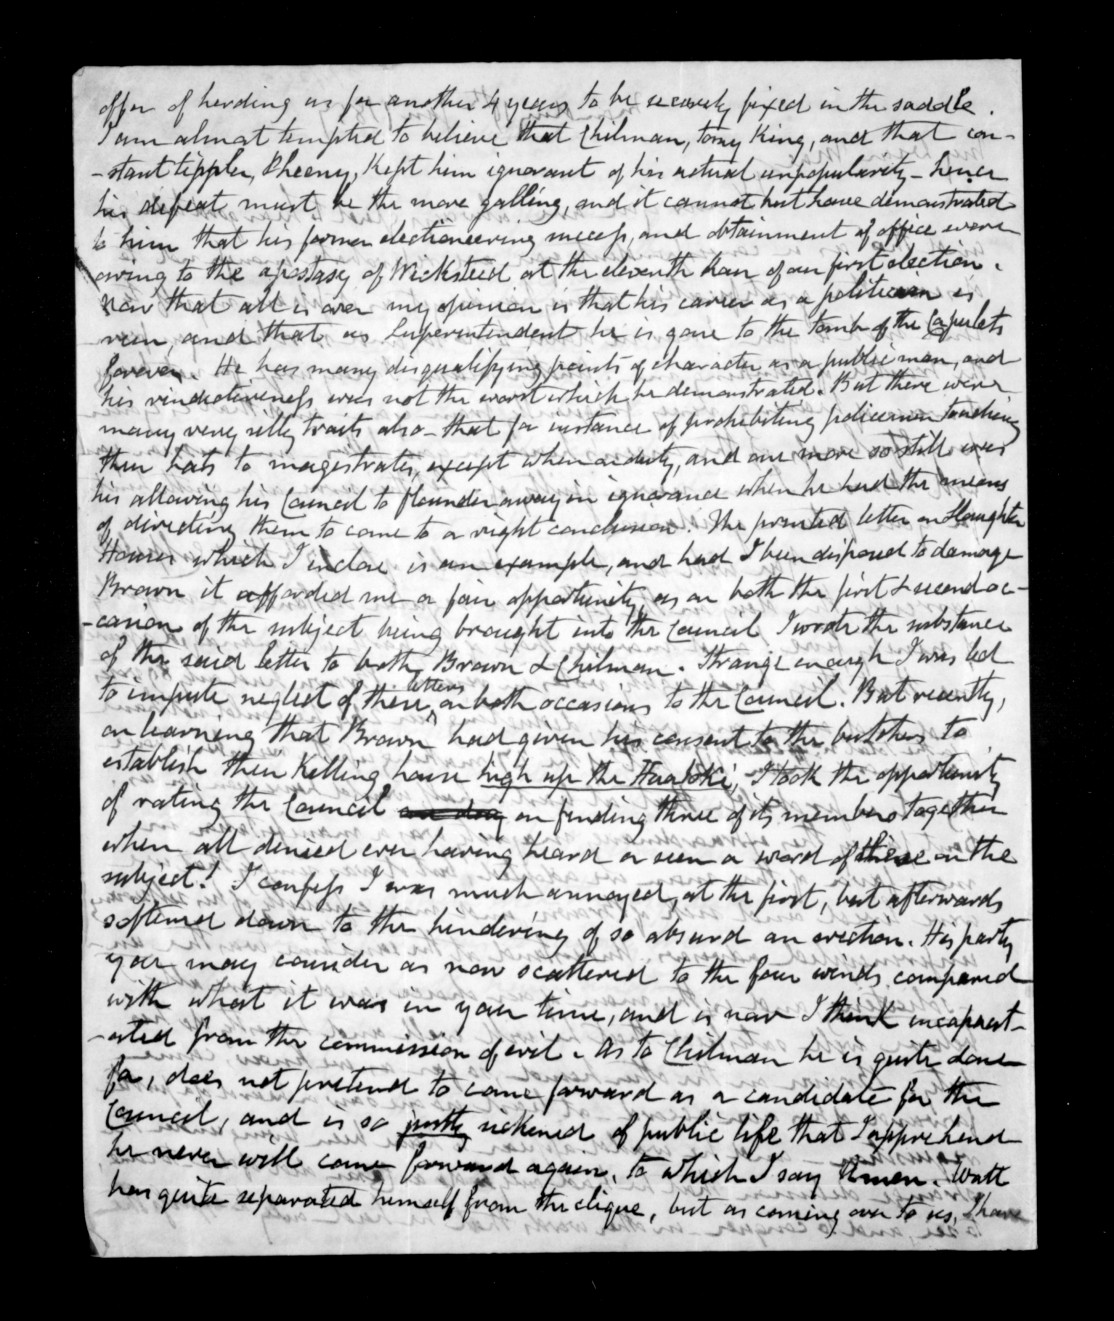 offer of herding us for another 4 years to be securely fixed in the saddle.
I am almost tempted to believe that Chilman, tomy King, and that con-
-stant tippler, Pheeny, kept him ignorant of his actual unpopularity - hence
his defeat must be the more galling, and it cannot but have demonstrated
to him that his former electioneering success, and obtainment of office were
owing to the apostasy of Wicksteed at the eleventh hour of our first election.
Now that all is over my opinion is that his career as a politician is
run, and that as Superintendent he is gone to the tomb of the Capulets
forever. He has many disqualifying points of character as a public man, and
his vindictiveness was not the worst which he demonstrated. But there were
many very silly traits also - that for instance of prohibiting policemen touching
their hats to magistrates, except when on duty, and one more so still was
his allowing his Council to flounder away in ignorance when he had the means
of directing them to come to a right conclusion. The printed letter on Slaughter
Houses which I inclose is an example, and had I been disposed to damage
Brown it afforded me a fair opportunity, as on both the first & second oc-
-casion of the subject being brought into the Council I wrote the substance
of the said letter to both Brown & Chilman. Strange enough I was led
to impute neglect of these letters on both occasions to the Council. But recently,
on learning that Brown had given his consent to the butchers to
establish their killing house high up the Huatoki, I took the opportunity
of rating the Council on finding three of its members together
when all denied ever having heard or seen a word of these on the
subject! I confess I was much annoyed at the first, but afterwards
softened down to the hindering of so absurd an erection. His party
you may consider as now scattered to the four winds compared
with what it was in your time, and is now I think incapacit-
-ated from the commission of evil. As to Chilman he is quite done
for, does not pretend to come forward as a candidate for the
Council, and is so justly sickened of public life that I apprehend
he never will come forward again, to which I say Amen. Watt
has quite separated himself from the clique, but as coming over to us, I have